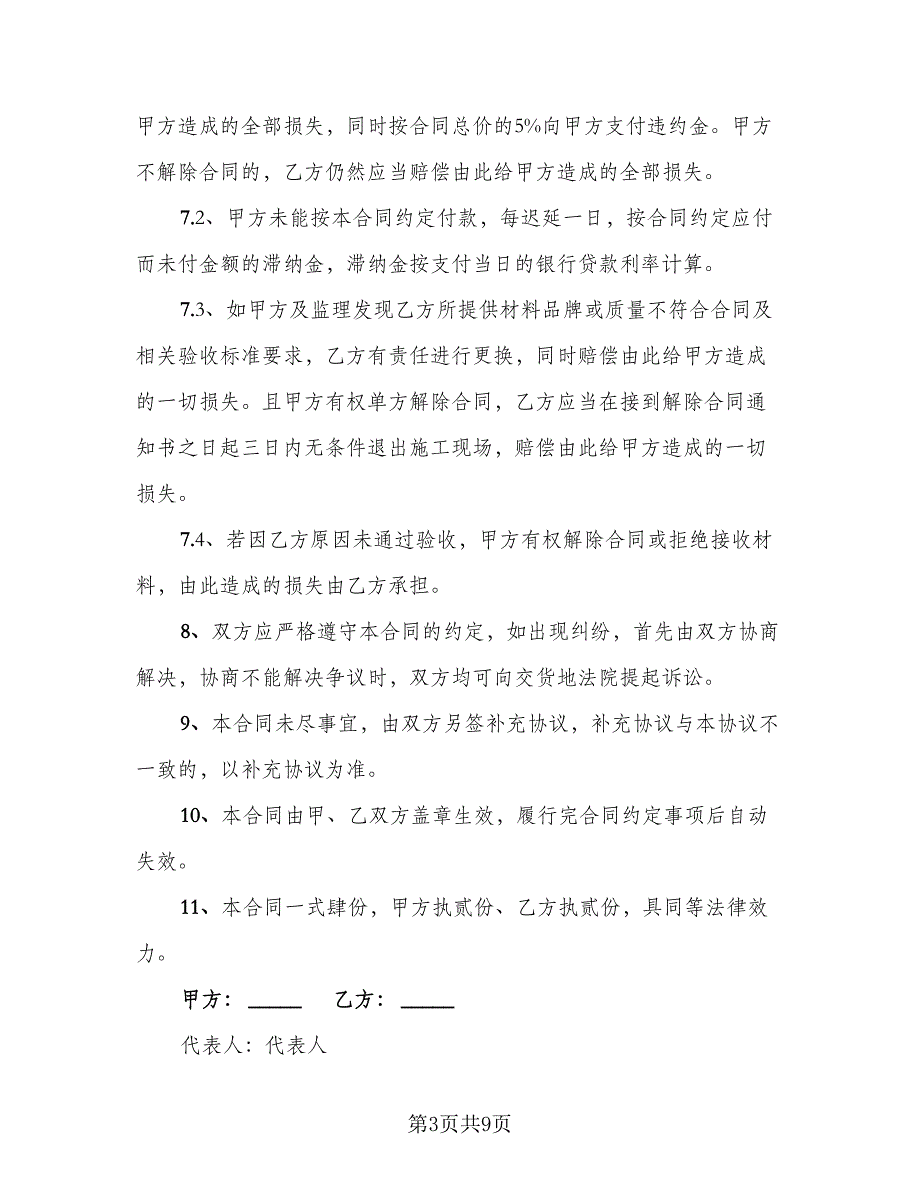 甲方造成的全部损失，同时按合同总价的5%向甲方支付违约金。甲方
不解除合同的，乙方仍然应当赔偿由此给甲方造成的全部损失。
7.2、甲方未能按本合同约定付款，每迟延一日，按合同约定应付
而未付金额的滞纳金，滞纳金按支付当日的银行贷款利率计算。
7.3、如甲方及监理发现乙方所提供材料品牌或质量不符合合同及
相关验收标准要求，乙方有责任进行更换，同时赔偿由此给甲方造成
的一切损失。且甲方有权单方解除合同，乙方应当在接到解除合同通
知书之日起三日内无条件退出施工现场，赔偿由此给甲方造成的一切
损失。
7.4、若因乙方原因未通过验收，甲方有权解除合同或拒绝接收材
料，由此造成的损失由乙方承担。
8、双方应严格遵守本合同的约定，如出现纠纷，首先由双方协商
解决，协商不能解决争议时，双方均可向交货地法院提起诉讼。
9、本合同未尽事宜，由双方另签补充协议，补充协议与本协议不
一致的，以补充协议为准。
10、本合同由甲、乙双方盖章生效，履行完合同约定事项后自动
失效。
11、本合同一式肆份，甲方执贰份、乙方执贰份，具同等法律效
力。
甲方：_____ 乙方：_____
代表人：代表人
第3页共9页